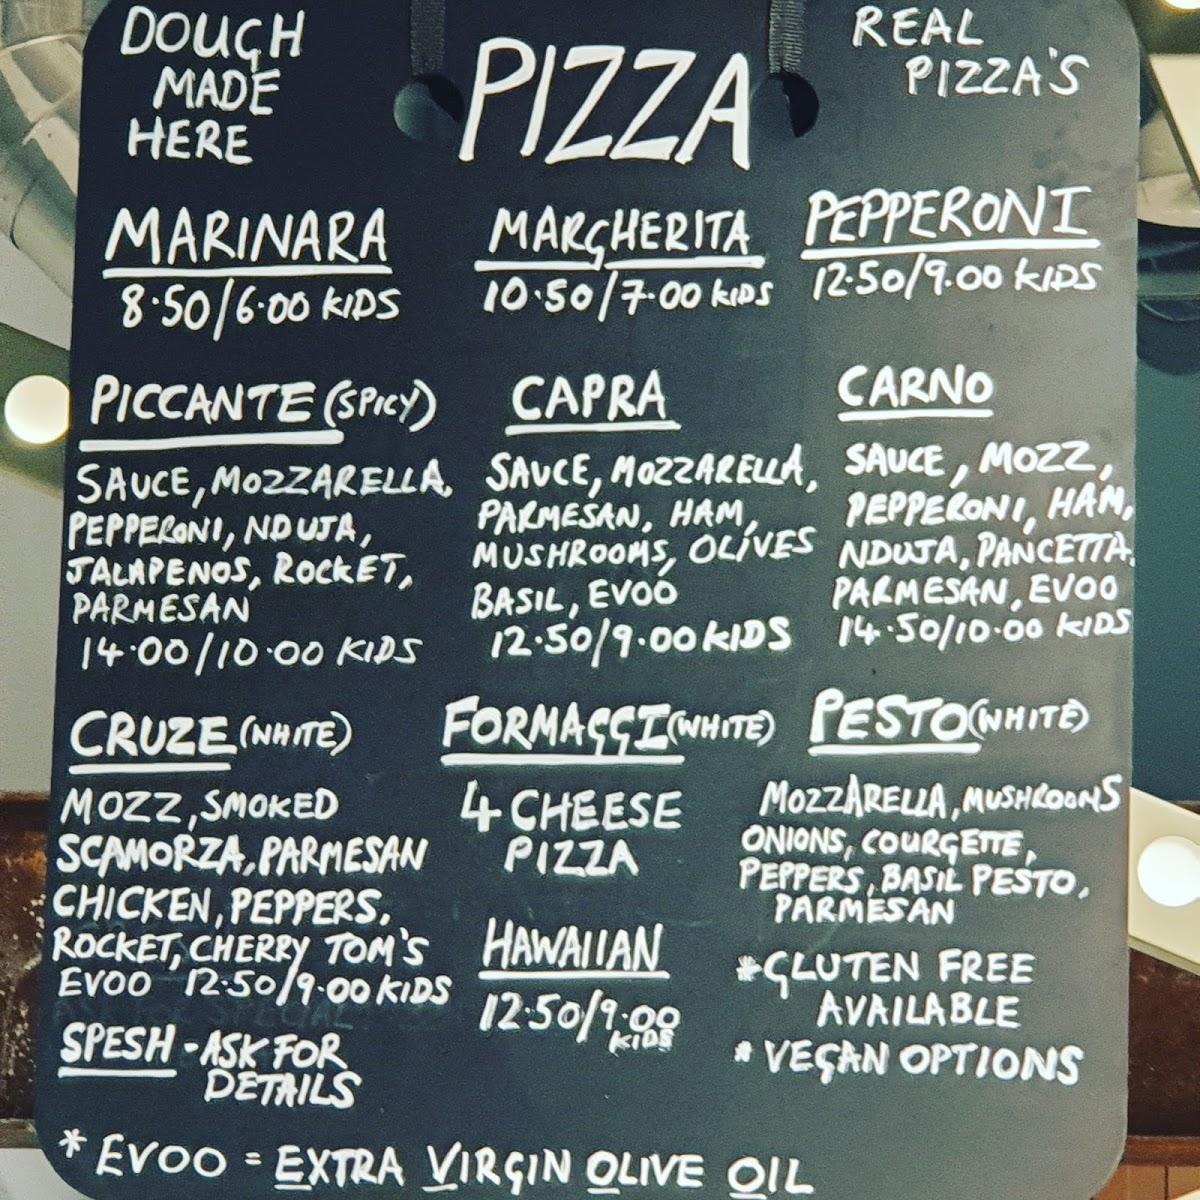 DOUGH
MADE
HERE
PIZZA
REAL
PIZZA'S
MARINARA
8.50/6.00 KIDS
MARGHERITA
10.50/7.00 KIDS
PEPPERONI
12.50/9.00 KIDS
PICCANTE (SPICY)
SAUCE, MOZZARELLA,
PEPPERONI, NDUJA,
JALAPENOS, ROCKET,
PARMESAN
14.00/10.00 KIDS
CAPRA
SAUCE, MOZZARELLA,
PARMESAN, HAM,
MUSHROOMS, OLIVES
BASIL, EVOO
12.50/9.00 KIDS
CARNO
SAUCE, MOZZ,
PEPPERONI, HAM,
NDUJA, PANCETTA.
PARMESAN, EVOO
14.50/10.00 KIDS
CRUZE (WHITE)
MOZZ, SMOKED
SCAMORZA, PARMESAN
CHICKEN, PEPPERS,
ROCKET, CHERRY TOM'S
EVOO 12.50/9.00 KIDS
SPESH - ASK FOR
DETAILS
FORMAGGI (WHITE)
4 CHEESE
PIZZA
HAWAIIAN
12.50/9.00
KIDS
PESTO (WHITE)
MOZZARELLA, MUSHROONS
ONIONS, COURGETTE,
PEPPERS, BASIL PESTO,
PARMESAN
*GLUTEN FREE
AVAILABLE
* VEGAN OPTIONS
* EVOO = EXTRA VIRGIN OLIVE OIL